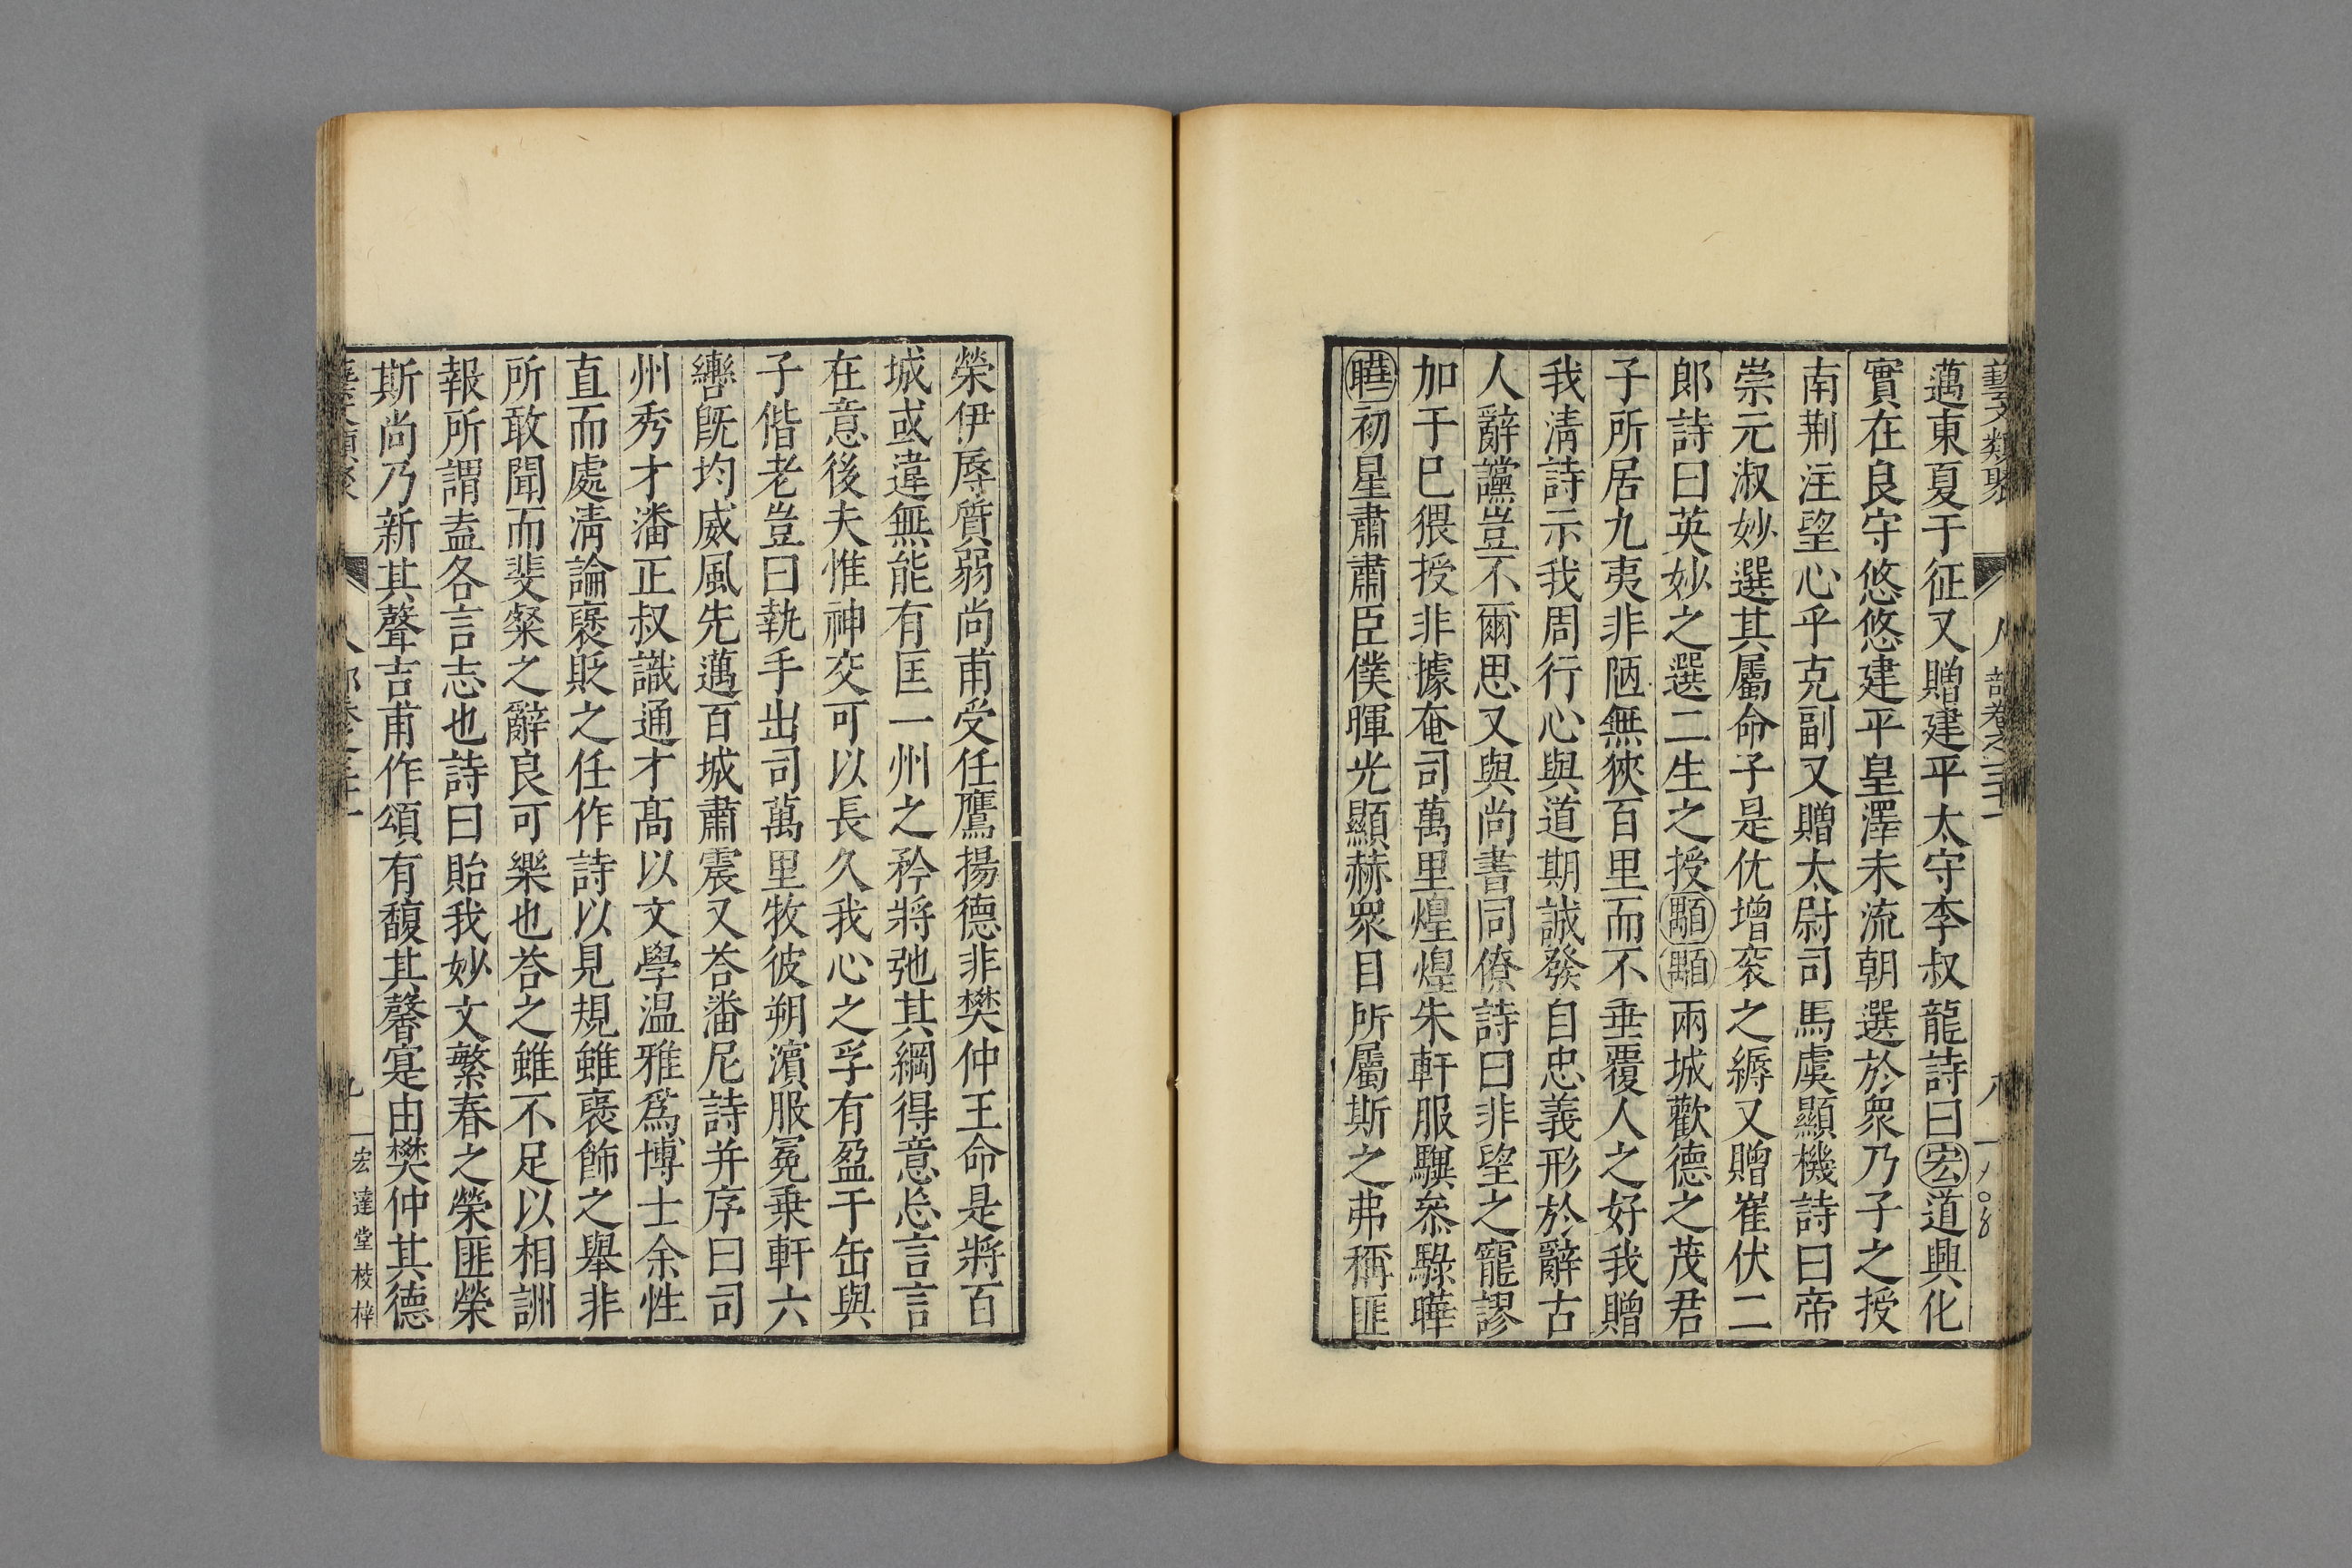 藝文類聚 人部卷之三十一 八
邁東夏于征又贈建平太守李叔龍詩曰宏道興化
實在良守悠悠建平皇澤未流朝選於衆乃子之授
南荆注望心乎克副又贈太尉司馬虞顯機詩曰帝
崇元淑妙選其屬命子是优增衮之縟又贈崔伏二
郎詩曰英妙之選二生之授顒顒兩城歡德之茂君
子所居九夷非陋無狹百里而不垂覆人之好我贈
我清詩示我周行心與道期誠發自忠義形於辭古
人辭讜豈不爾思又與尚書同僚詩曰非望之寵謬
加于巳猥授非據奄司萬里煌煌朱軒服驥叅騄曄
曄初星肅肅臣僕暉光顯赫衆目所屬斯之弗稱匪
榮伊辱質弱尚甫受任鷹揚德非樊仲王命是將百
城或違無能有匡一州之矜將弛其綱得意忘言言
在意後夫惟神交可以長久我心之孚有盈于缶與
子偕老豈曰執手出司萬里牧彼朔濱服冕乗軒六
轡旣均威風先邁百城肅震又荅潘尼詩并序曰司
州秀才潘正叔識通才髙以文學温雅爲博士余性
直而處清論襃貶之任作詩以見規雖襃飾之舉非
所敢聞而斐粲之辭良可樂也荅之雖不足以相詶
報所謂盍各言志也詩曰貽我妙文繁春之榮匪榮
斯尚乃新其聲吉甫作頌有馥其馨寔由樊仲其德
九 宏達堂校梓